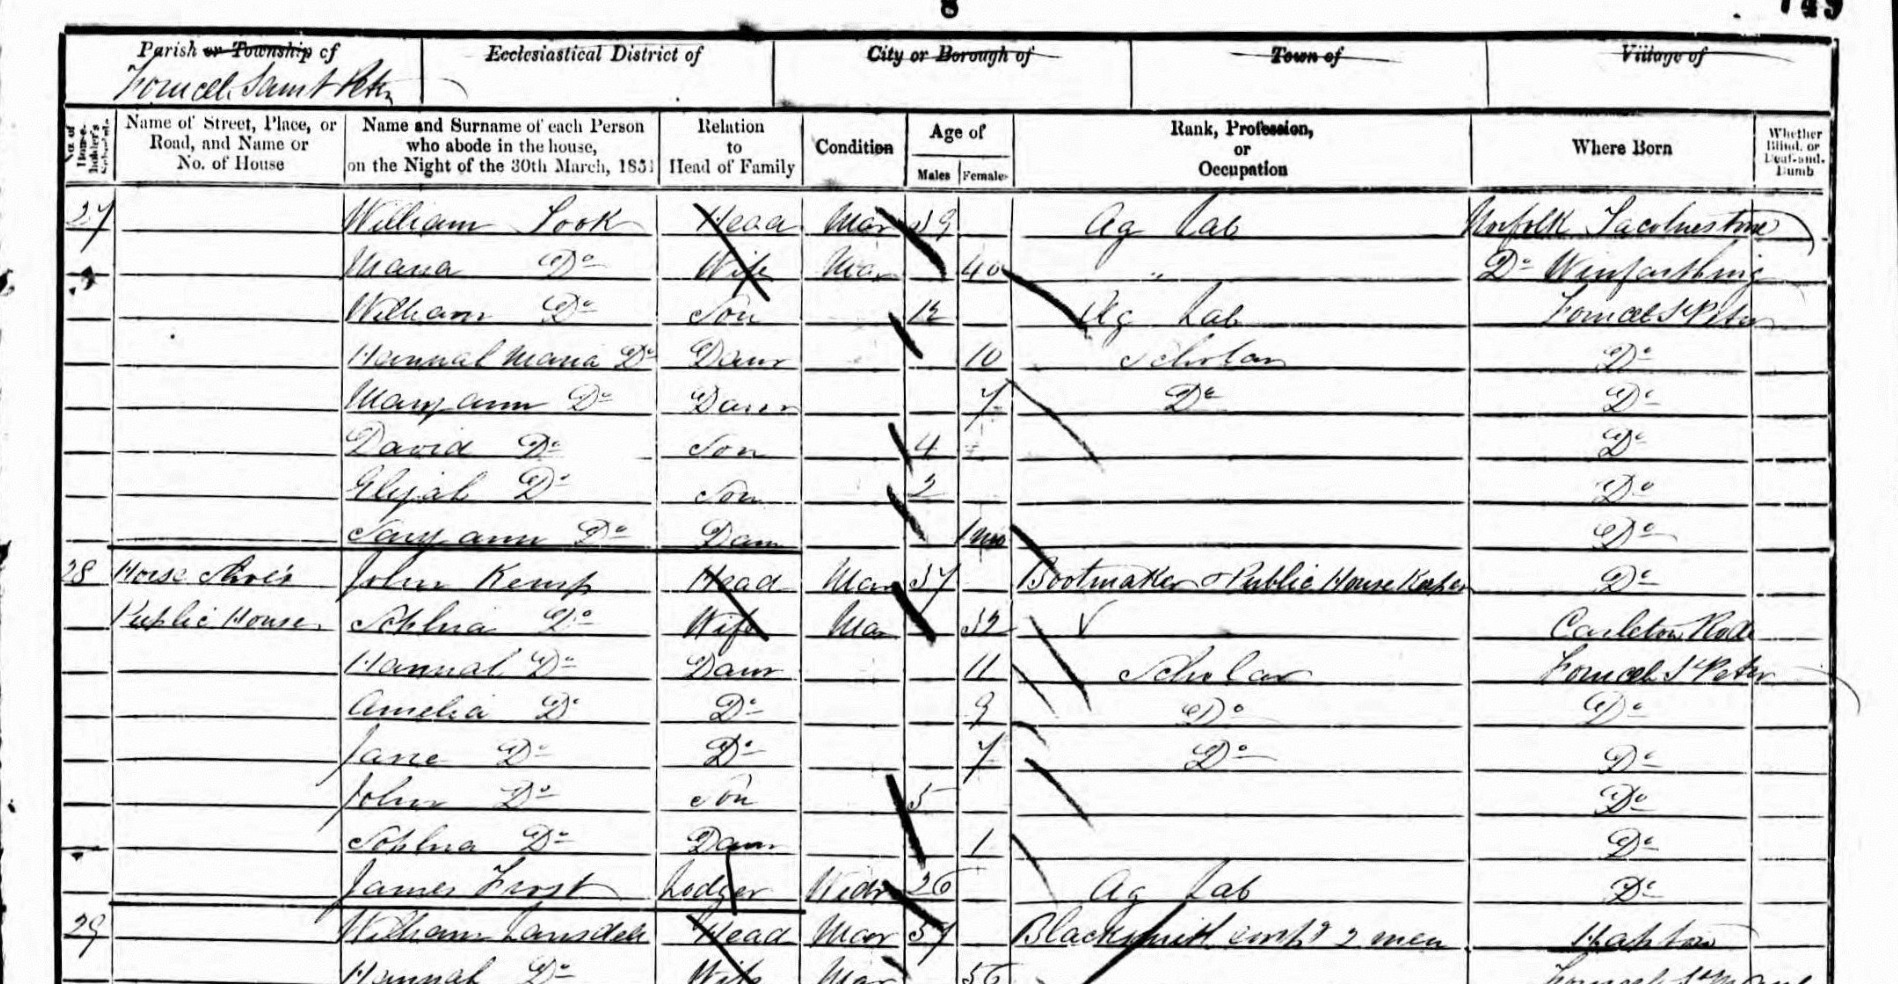 8
149
Parish or Township of Ecclesiastical District of City or Borough of Town of Village of
Forncet Saint Peter
No. of House-holder's Schedule Name of Street, Place, or Road, and Name or No. of House Name and Surname of each Person who abode in the house, on the Night of the 30th March, 1851 Relation to Head of Family Condition Age of Males Females Rank, Profession, or Occupation Where Born Whether Blind, or Deaf-and-Dumb
27 William Head Mar 39 Ag Lab Norfolk Tacolnestone
Maria Do Wife Mar 40 " Do Winfarthing
William Do Son 12 Ag Lab Forncet St Peter
Hannah Maria Do Daur 10 Scholar Do
Maryann Do Daur 7 Do Do
David Do Son 4 Do
Elijah Do Son 2 Do
Do Daur 1 mo Do
28 Horse Shoe's John Kemp Head Mar 37 Bootmaker & Public House Keeper Do
Public House Sophia Do Wife Mar 32 Carleton Rode
Hannah Do Daur 11 Scholar Forncet St Peter
Amelia Do Do 9 Do Do
Jane Do Do 7 Do Do
John Do Son 5 Do
Sophia Do Daur 1 Do
James Frost Lodger Widr 26 Ag Lab Do
29 William Head Mar 57 Blacksmith empg 2 men Hapton
Hannah Do Wife Mar 56 Forncet St Mary